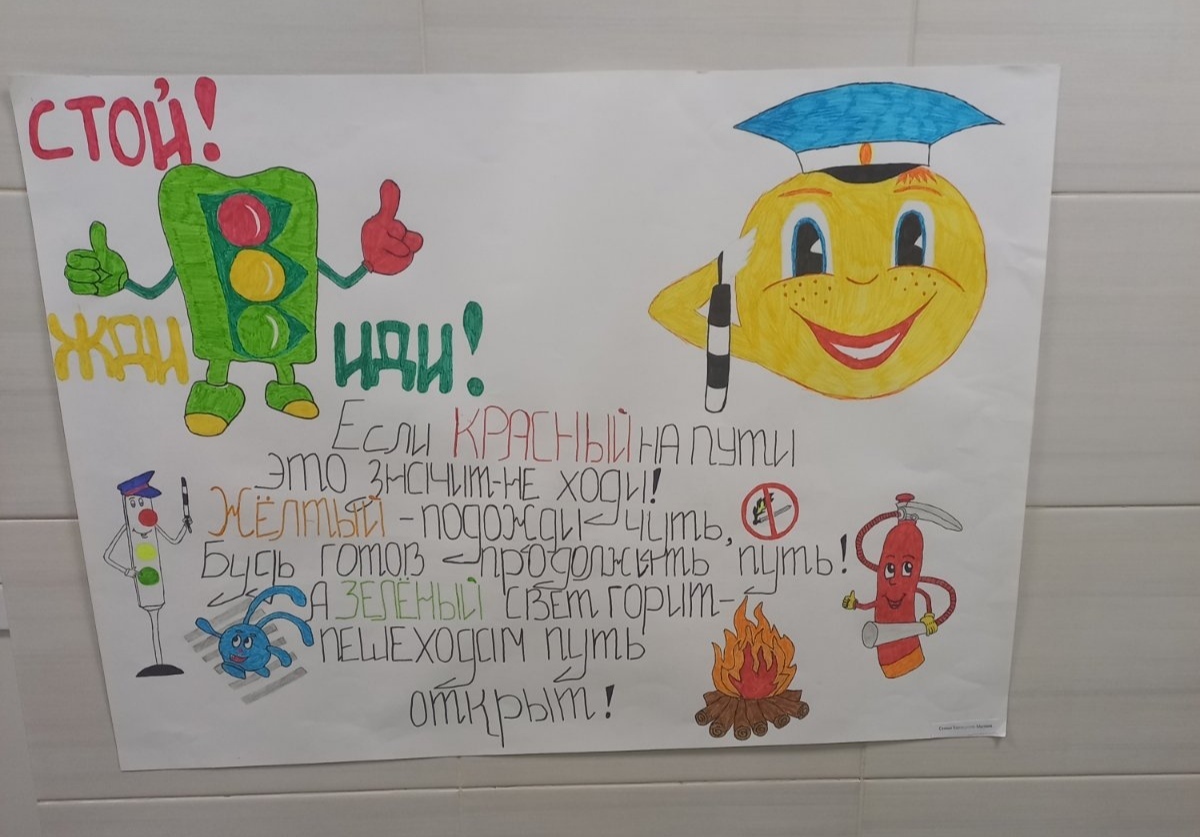 СТОЙ!
ЖДИ
ИДИ!
Если КРАСНЫЙ на пути
это значит-не ходи!
ЖЁЛТЫЙ - подожди чуть,
Будь готов продолжить путь!
А ЗЕЛЁНЫЙ свет горит-
пешеходам путь
открыт!